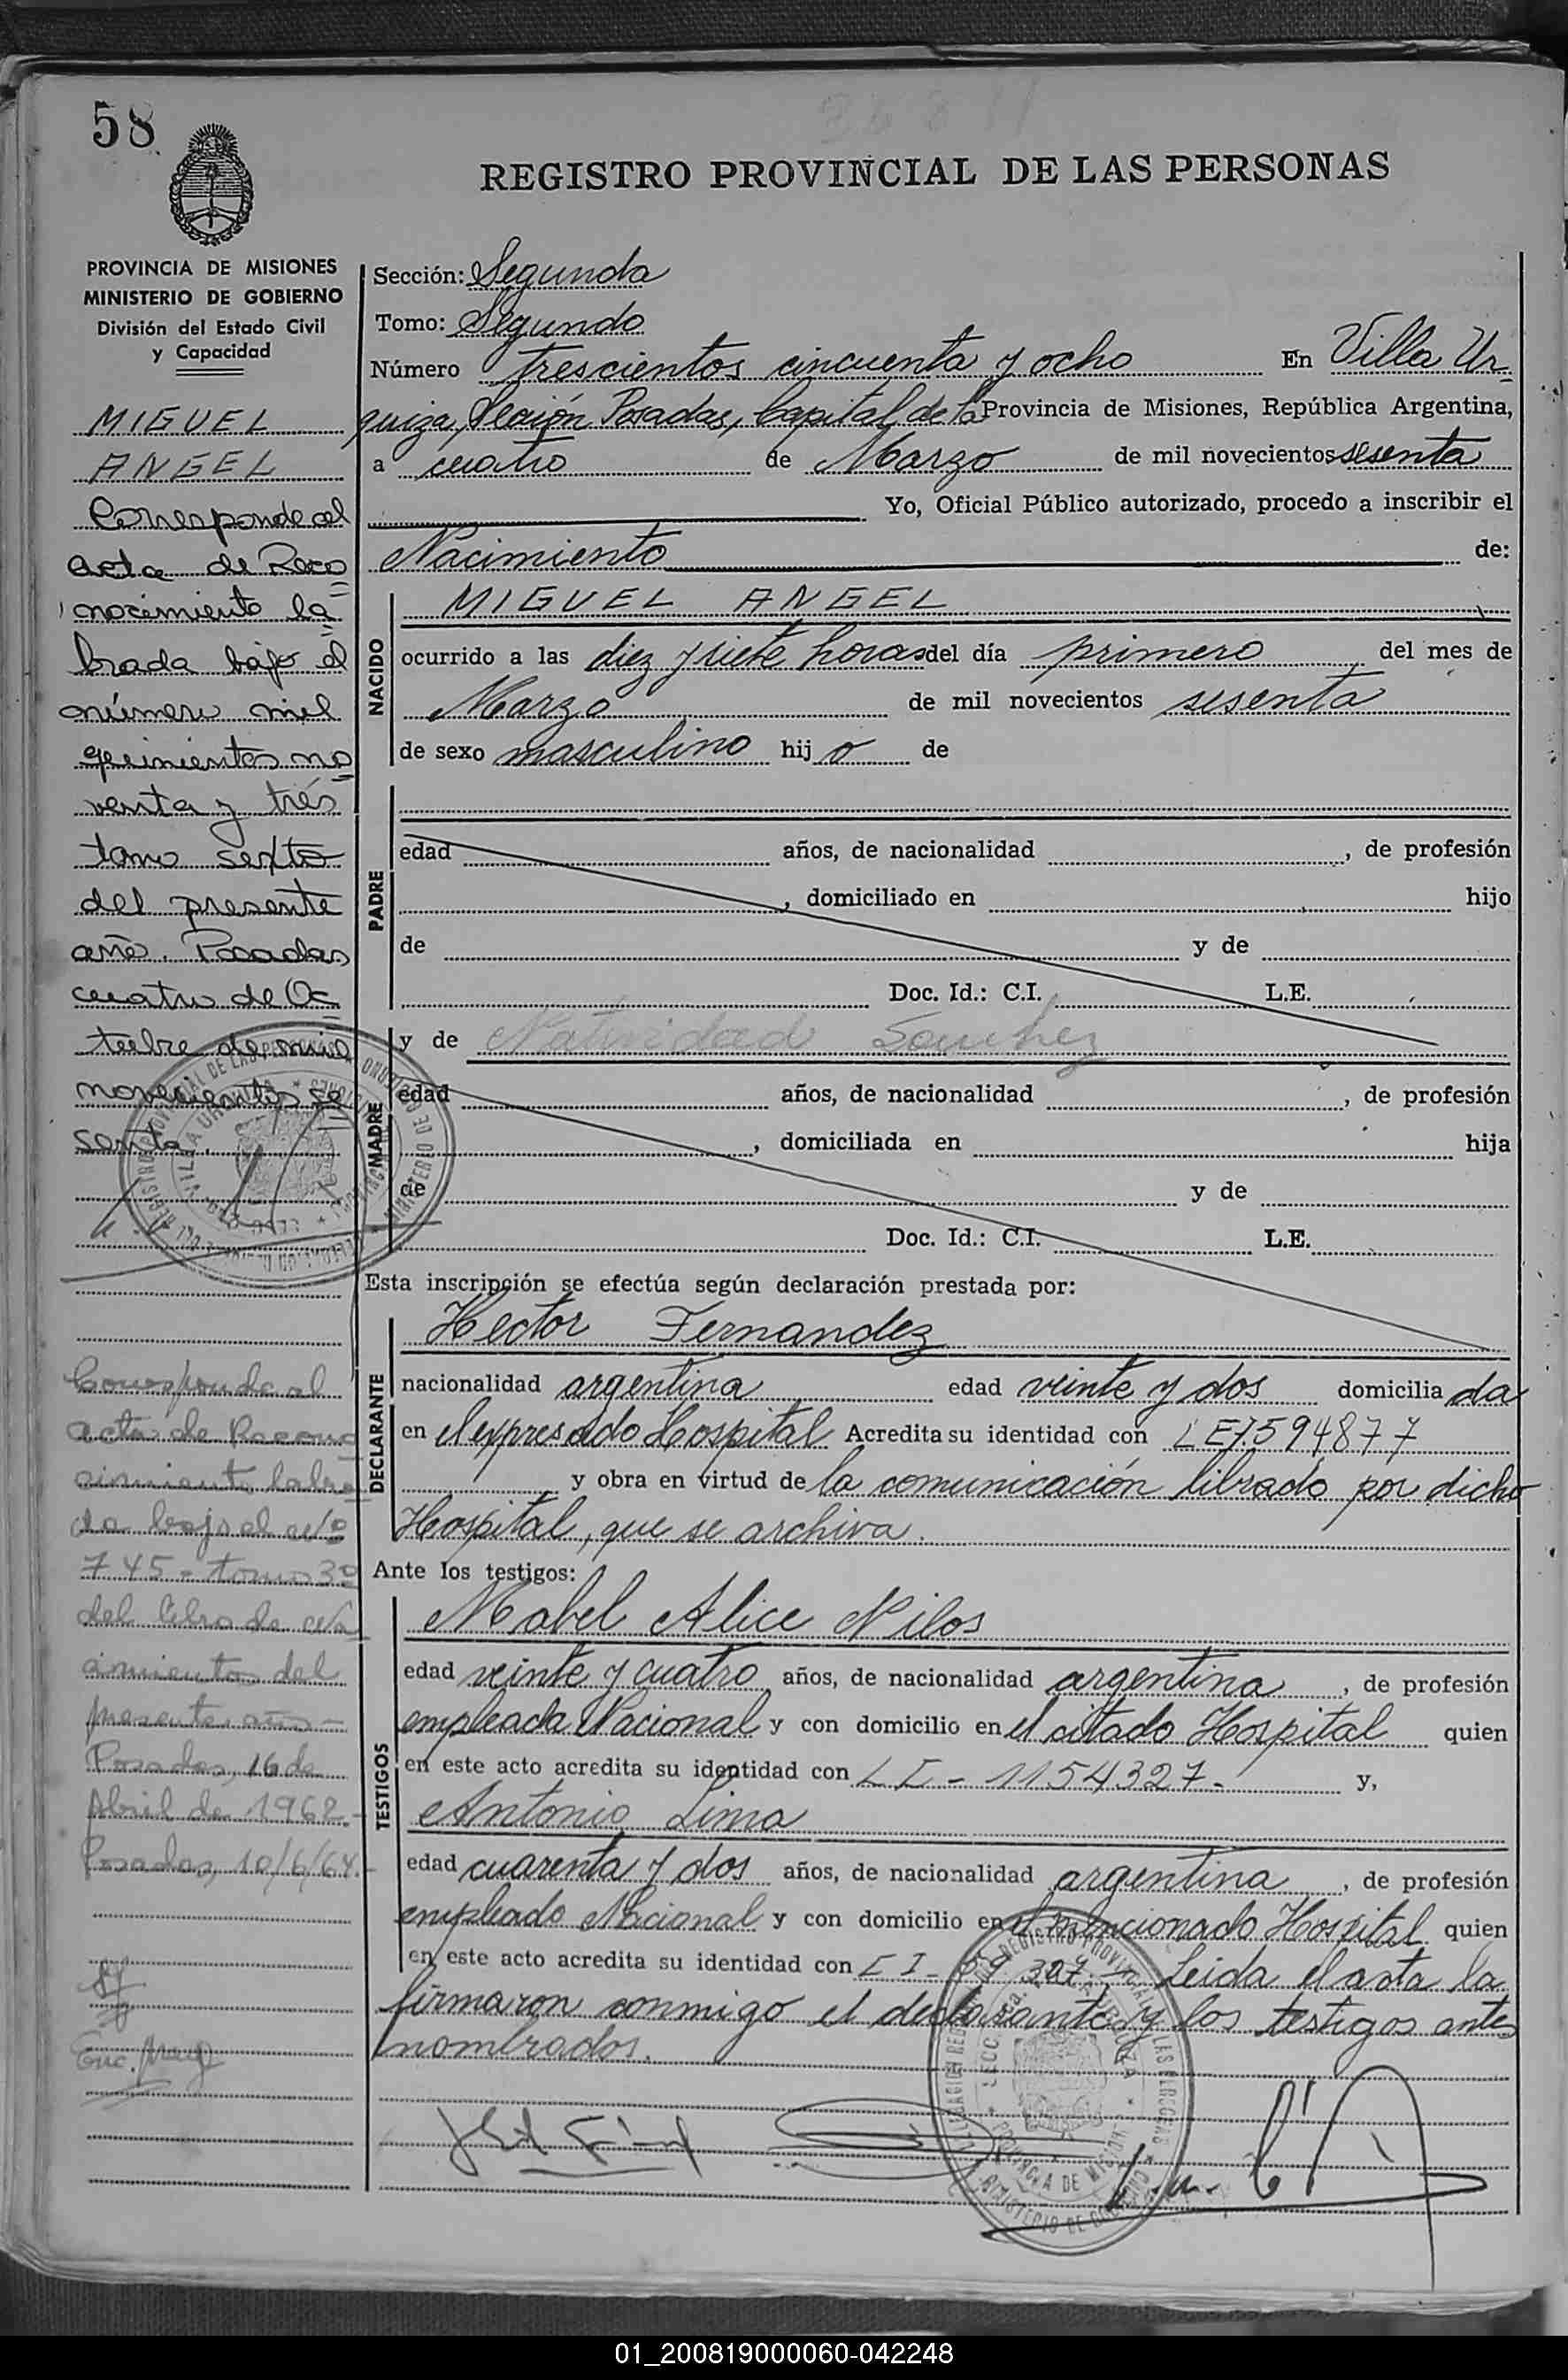 58
REGISTRO PROVINCIAL DE LAS PERSONAS
PROVINCIA DE MISIONES
MINISTERIO DE GOBIERNO
División del Estado Civil
y Capacidad
MIGUEL
ANGEL
Corresponde al
acta de Reco
nocimiento la
brada bajo el
número mil
quinientos no
venta y trés
tomo sexto
del presente
año. Posadas
cuatro de Oc
tubre de mil
novecientos se
senta.
Corresponde al
acta de Recono
cimiento labra
da bajo el nº
745 - tomo 3º
del libro de na
cimientos del
presente año -
Posadas, 16 de
Abril de 1962.-
Posadas, 10/6/64.-
Sección: Segunda
Tomo: Segundo
Número trescientos cincuenta y ocho En Villa Ur
quiza, Sección Posadas, Capital de la Provincia de Misiones, República Argentina,
a cuatro de Marzo de mil novecientos sesenta
Yo, Oficial Público autorizado, procedo a inscribir el
Nacimiento de:
NACIDO
MIGUEL ANGEL
ocurrido a las diez y siete horas del día primero del mes de
Marzo de mil novecientos sesenta
de sexo masculino hijo de
PADRE
edad años, de nacionalidad , de profesión
, domiciliado en hijo
de y de
Doc. Id.: C.I. L.E.
y de Natividad Sanchez
MADRE
edad años, de nacionalidad , de profesión
, domiciliada en hija
de y de
Doc. Id.: C.I. L.E.
Esta inscripción se efectúa según declaración prestada por:
DECLARANTE
Hector Fernandez
nacionalidad argentina edad veinte y dos domiciliada
en el expresado Hospital Acredita su identidad con LE7.594877
y obra en virtud de la comunicación librado por dicho
Hospital, que se archiva.
Ante los testigos:
TESTIGOS
Mabel Alice Nilos
edad veinte y cuatro años, de nacionalidad argentina , de profesión
empleada Nacional y con domicilio en el citado Hospital quien
en este acto acredita su identidad con 1154327.- y,
Antonio Lima
edad cuarenta y dos años, de nacionalidad argentina , de profesión
empleado Nacional y con domicilio en el mencionado Hospital quien
en este acto acredita su identidad con Leida el acta la
firmaron conmigo el declarante y los testigos antes
nombrados.
01_200819000060-042248